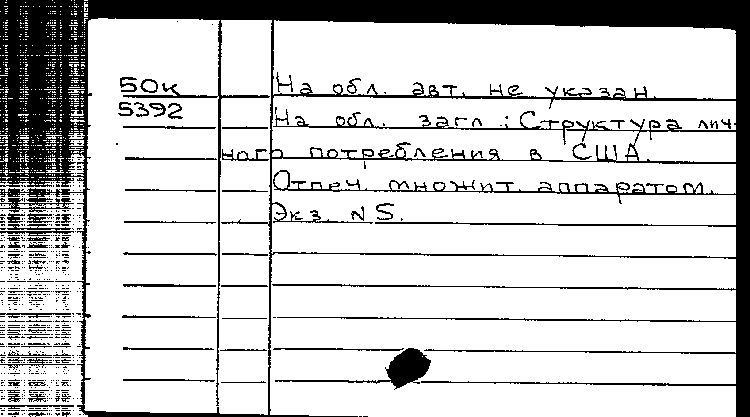 50к На обл. авт. не указан.
5392 На обл. загл.: Структура лич-
ного потребления в США.
Отпеч. множит. аппаратом.
Экз. N 5.